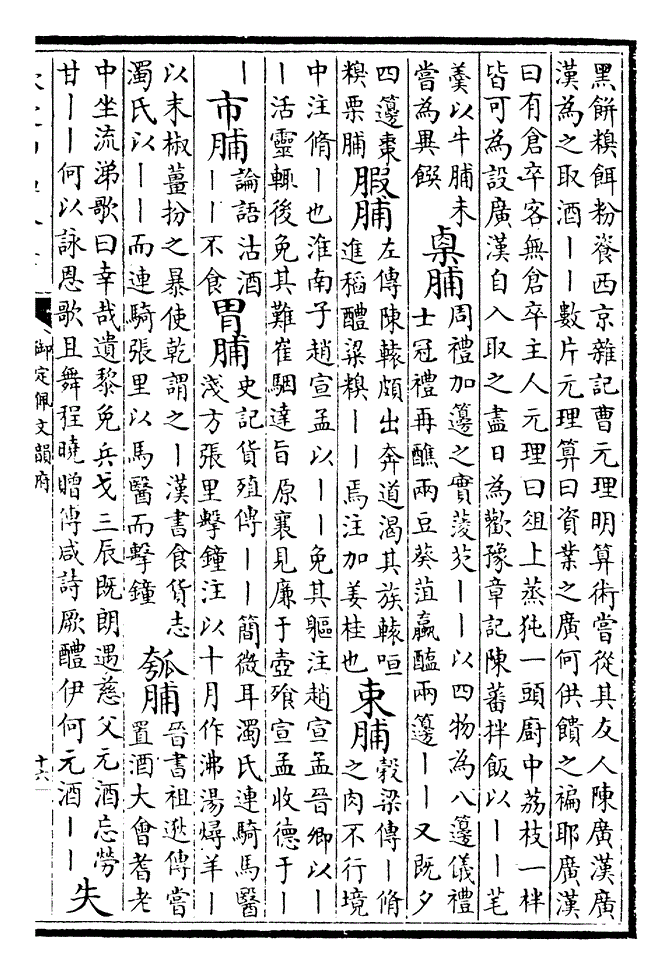 黑餅糗餌粉餈西京雜記曹元理明算術嘗從其友人陳廣漢廣
漢為之取酒——數片元理算曰資業之廣何供饋之褊耶廣漢
曰有倉卒客無倉卒主人元理曰俎上蒸㹠一頭廚中荔枝一柈
皆可為設廣漢自入取之盡日為歡豫章記陳蕃拌飯以——芼
羮以牛脯未
嘗為異饌
㮚脯
周禮加籩之實菱芡——以四物為八籩儀禮
士冠禮再醮兩豆葵菹蠃醢兩籩——又既夕
四籩棗
糗栗脯
腶脯
左傳陳轅頗出奔道渴其族轅咺
進稻醴粱糗——焉注加姜桂也
束脯
穀梁傳—脩
之肉不行境
中注脩—也淮南子趙宣孟以——免其軀注趙宣孟晉卿以—
—活靈輒後免其難崔駰達旨原襄見廉于壺飱宣孟收德于—
—
市脯
論語沽酒
——不食
胃脯
史記貨殖傳——簡微耳濁氏連騎馬醫
淺方張里擊鐘注以十月作沸湯燖羊—
以末椒薑扮之暴使乾謂之—漢書食貨志
濁氏以——而連騎張里以馬醫而擊鐘
瓠脯
晉書祖逖傳嘗
置酒大會耆老
中坐流涕歌曰幸哉遺黎免兵戈三辰既朗遇慈父元酒忘勞
甘——何以詠恩歌且舞程曉贈傳咸詩厥醴伊何元酒——
失
御定佩文韻府
十六